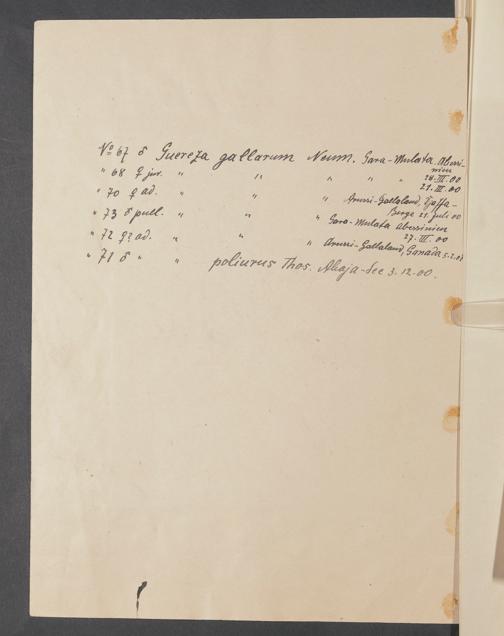 No 67 ♂ Guereza gallarum Neum. Gara-Mulata Abessi-
nien
" 68 ♀ juv. " " " " " 24.III.00
21.III.00
" 70 ♀ ad. " " " Arussi-Gallaland,
Berge 21. Juli 00
" 73 ♂ pull. " " " Gara-Mulata Abessinien
27.III.00
" 72 ♀? ad. " " " Arussi-Gallaland, Ganada
" 71 ♂ " " poliurus Thos. Abaja-See 3.12.00.